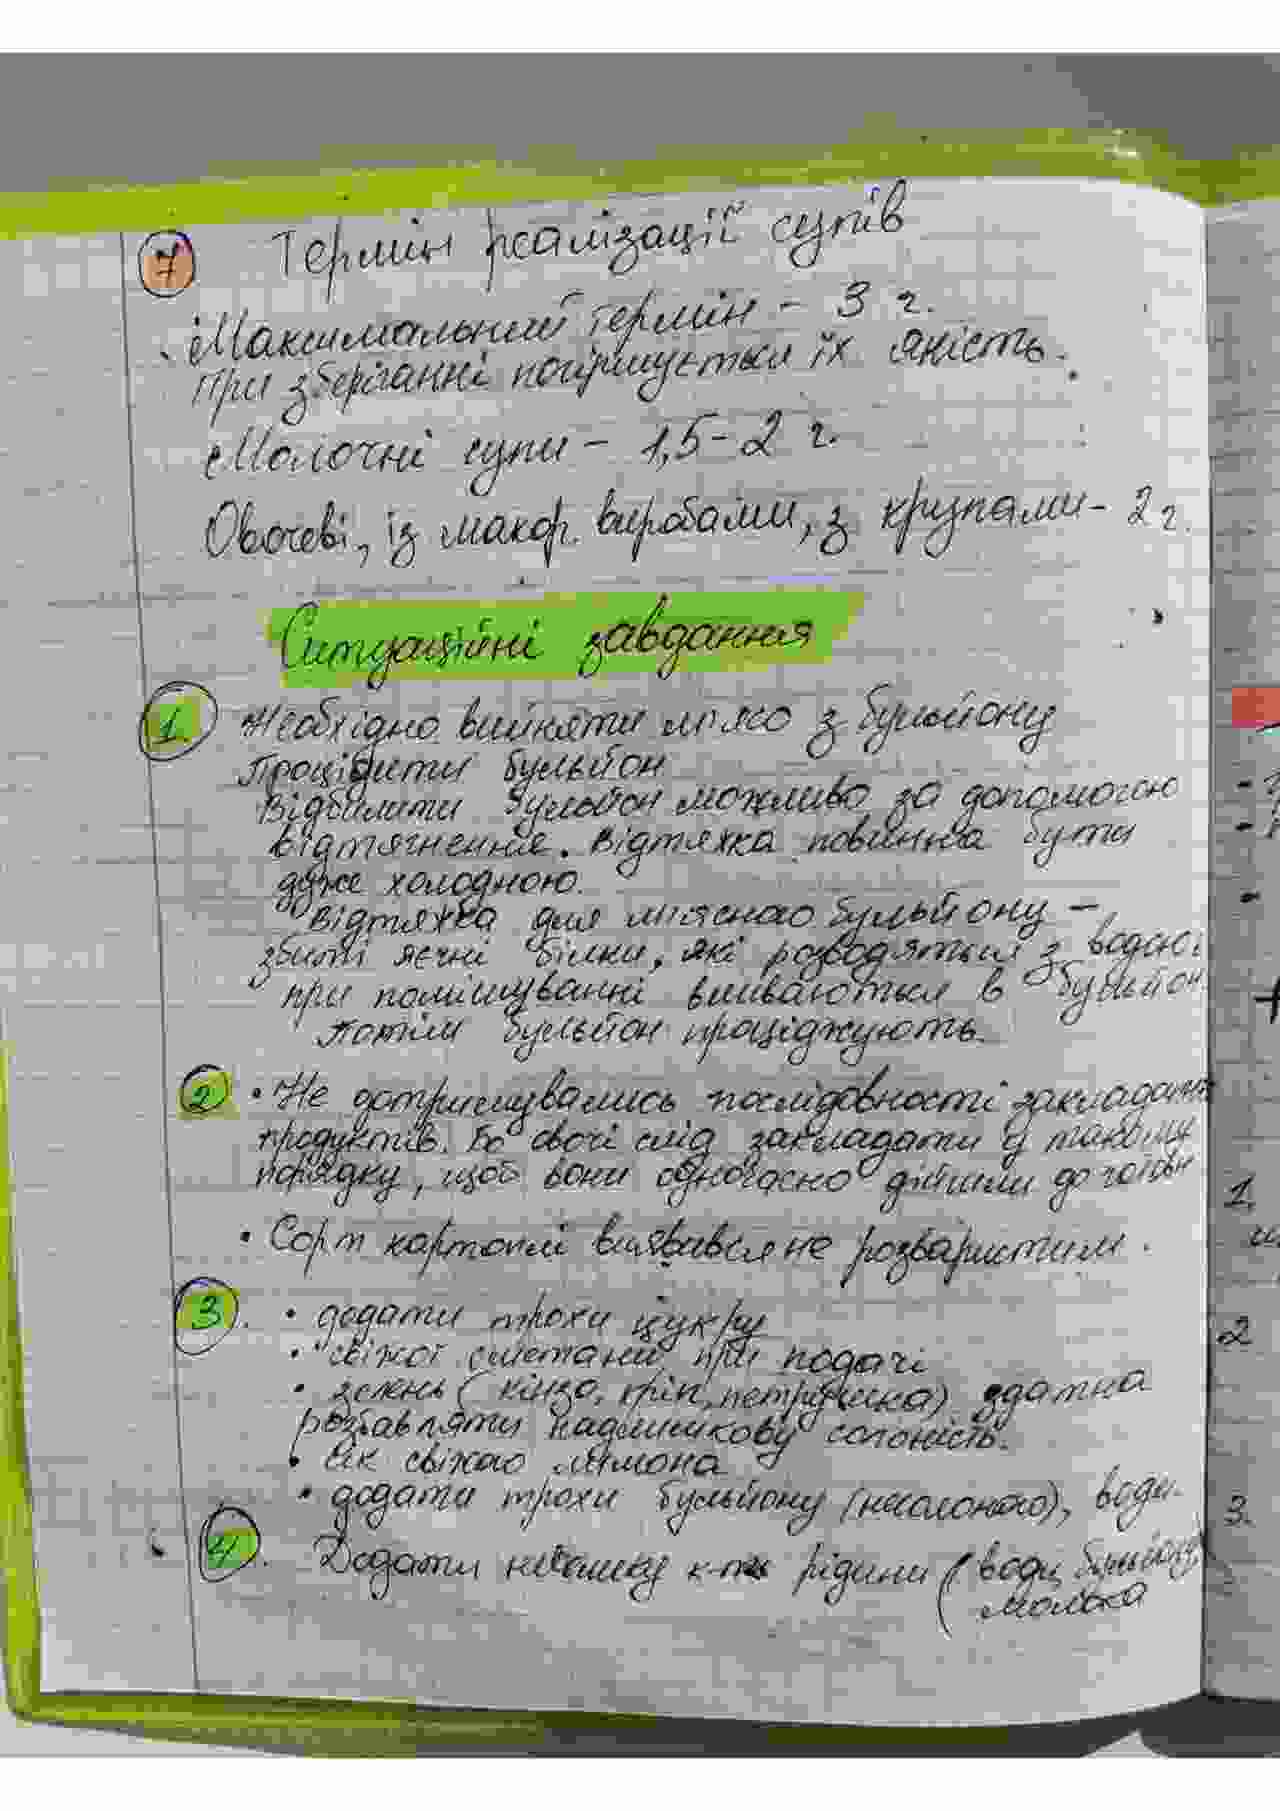 7 Термін реалізації супів
Максимальний термін - 3 г.
При зберіганні погіршується їх якість.
Молочні супи - 1,5-2 г.
Овочеві, із макар. виробами, з крупами - 2 г.
Ситуаційні завдання
1. Необхідно вийняти м'ясо з бульйону
Процідити бульйон
Відбілити бульйон можливо за допомогою
відтягнення. Відтяжка повинна бути
дуже холодною.
Відтяжка для м'ясного бульйону -
збиті яєчні білки, які розводяться з водою і
при помішуванні вливаються в бульйон
потім бульйон проціджують.
2 • Не дотримувались послідовності закладання
продуктів. Бо овочі слід закладати у такому
порядку, щоб вони одночасно дійшли до готовн
• Сорт картоплі виявився не розваристим.
3. • додати трохи цукру
• свіжої сметани при подачі
• зелень (кінза, кріп, петрушка) здатна
розбавляти надлишкову солоність.
• сік свіжого лимона
• додати трохи бульйону (несолоного), води.
4. Додати невелику к-ть рідини (води, бульйону,
молока
1.
2
3.